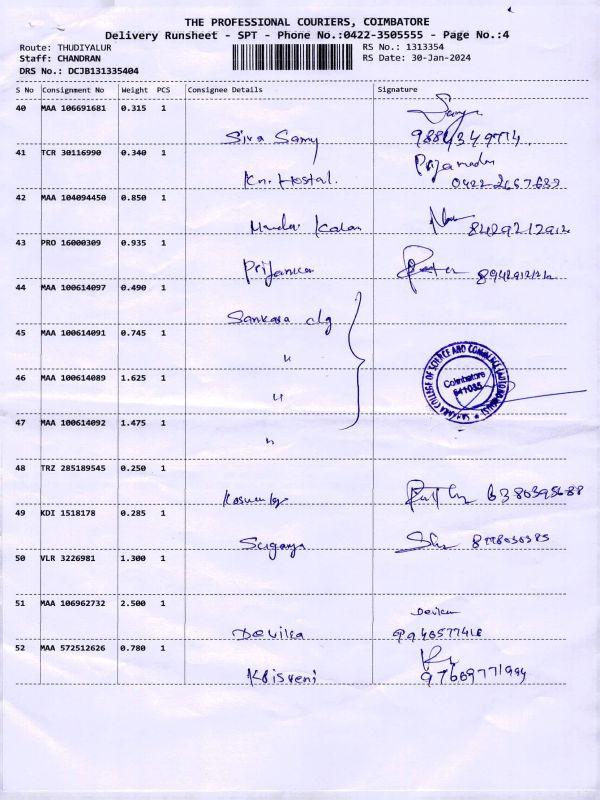 THE PROFESSIONAL COURIERS, COIMBATORE
Delivery Runsheet - SPT - Phone No.:0422-3505555 - Page No.:4
Route: THUDIYALUR RS No.: 1313354
Staff: CHANDRAN RS Date: 30-Jan-2024
DRS No.: DCJB131335404
S No Consignment No Weight PCS Consignee Details Signature
40 MAA 106691681 0.315 1
Siva Samy
41 TCR 30116990 0.340 1
Hostal.
42 MAA 104094450 0.850 1
43 PRO 16000309 0.935 1
Prijanka
44 MAA 100614097 0.490 1
Sankara clg
45 MAA 100614091 0.745 1
"
46 MAA 100614089 1.625 1
"
SANKARA COLLEGE OF SCIENCE AND COMMERCE (AUTONOMOUS)
Coimbatore
641035
47 MAA 100614092 1.475 1
"
48 TRZ 285189545 0.250 1
49 KDI 1518178 0.285 1
Suganya
50 VLR 3226981 1.300 1
51 MAA 106962732 2.500 1
Devika
Devika
52 MAA 572512626 0.780 1
Krisveni